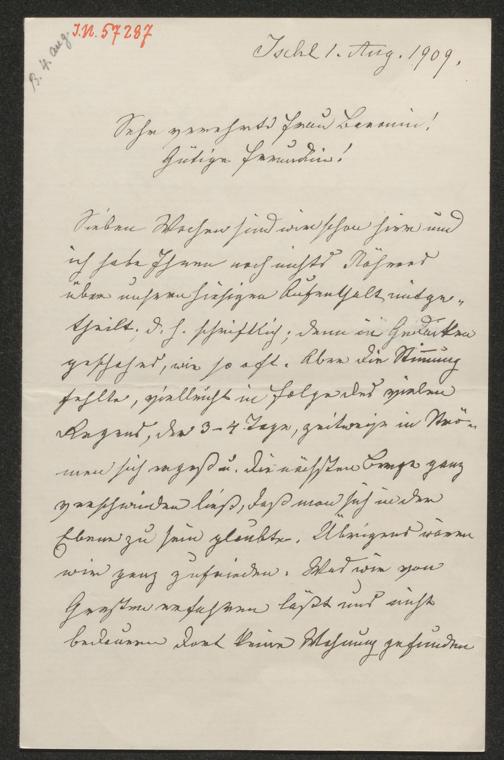 J.N. 57287
B. 4. Aug.
Ischl 1. Aug. 1909.
Sehr verehrte Frau Baronin!
Gütige Freundin!
Sieben Wochen sind wir schon hier und
ich habe Ihnen noch nichts Näheres
über unsern hiesigen Aufenthalt mitge-
theilt; d. h. schriftlich; denn in Gedanken
geschah es, wie so oft. Aber die Stimmung
fehlte, vielleicht in Folge des vielen
Regens, der 3–4 Tage, zeitweise in Strö-
men sich ergoß u. die nächsten Berge ganz
verschwinden ließ, daß man sich in der
Ebene zu sein glaubte. Übrigens wären
wir ganz zufrieden. Was wir von
erfahren läßt uns nicht
bedauern dort keine Wohnung gefunden